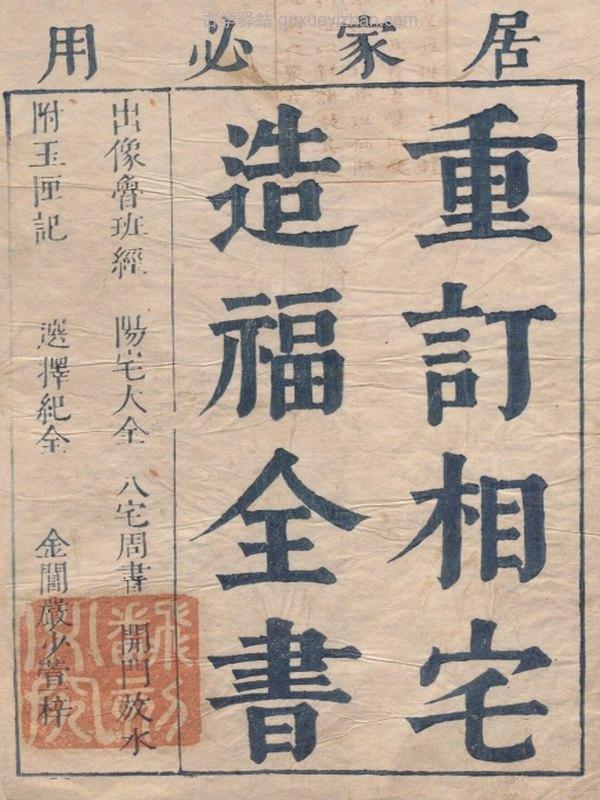 居家必用
重訂相宅
造福全書
出像魯班經 陽宅大全 八宅周書 開門放水
附玉匣記 選擇紀全 金閶嚴少萱梓
古学驿站 guxueyizhan.com